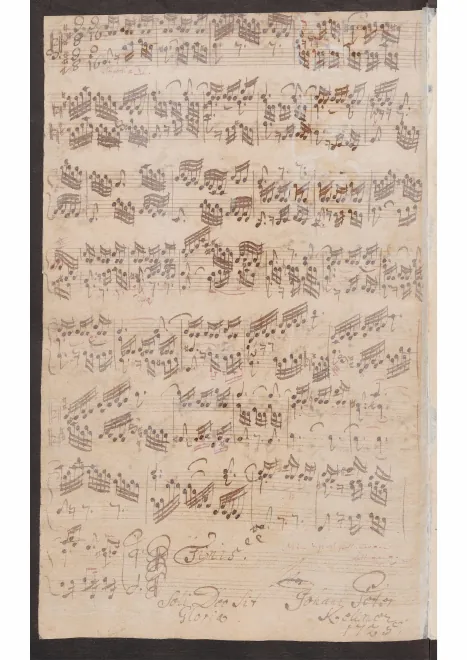 Finis.
Soli Deo Sit
Gloria
Johann Peter
Kellner
1725